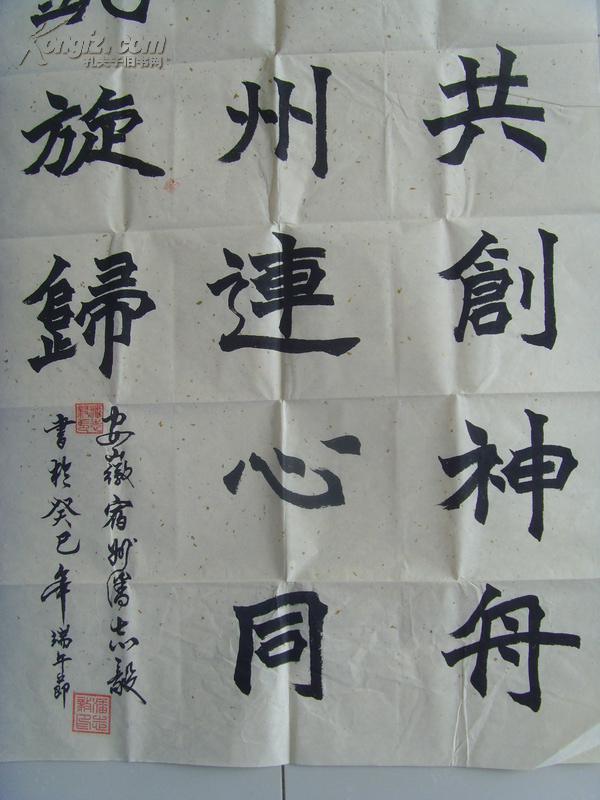 共創神舟
州連心同
旋歸
安徽宿州潘志毅
書於癸巳年端午節
Kongfz.com
孔夫子旧书网